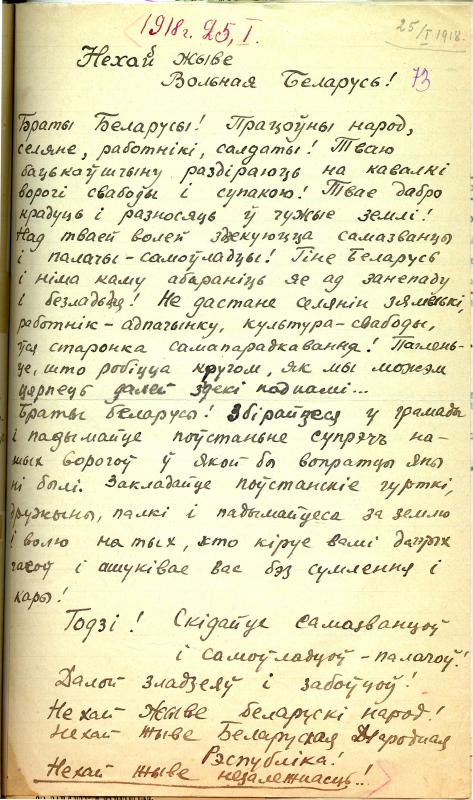 1918 г. 25, I.
25/I 1918.
Нехай жыве
Вольная Беларусь!
73
Браты Беларусы! Працоўны народ,
селяне, работнікі, салдаты! Тваю
бацькаўшчыну раздіраюць на кавалкі
ворогі свабоды і супакою! Твае дабро
крадуць і разносяць ў чужые землі!
Над тваей волей здекуюцца самазванцы
і палачы-самоўладцы! Гіне Беларусь
і німа каму абараніць яе ад занепаду
і безладьдя! Не дастане селянін зямелькі,
работнік-адпачынку, культура-свабоды,
ўся старонка самапарадкавання! Паглень-
це, што робіцца кругом, як мы можэм
церпець далей здекі над намі...
Браты беларусы! Збірайцеся у грамады
і падымайце поўстаньне супрэчь на-
шых ворогоў ў якой бы вопратцы яны
ні былі. Закладайце поўстанскіе гурткі,
дружыны, палкі і падымайцеса за землю
і волю на тых, хто кіруе вамі
часоў і ашуківае вас бэз сумлення і
кары!
Годзі! Скідайце самазванцоў
і самоўладцоў-палачоў!
Далой зладзеяў і забоўцоў!
Нехай жыве беларускі народ!
Нехай жыве Беларуская Народная
Рэспубліка!
Нехай жыве незалежнасць!!